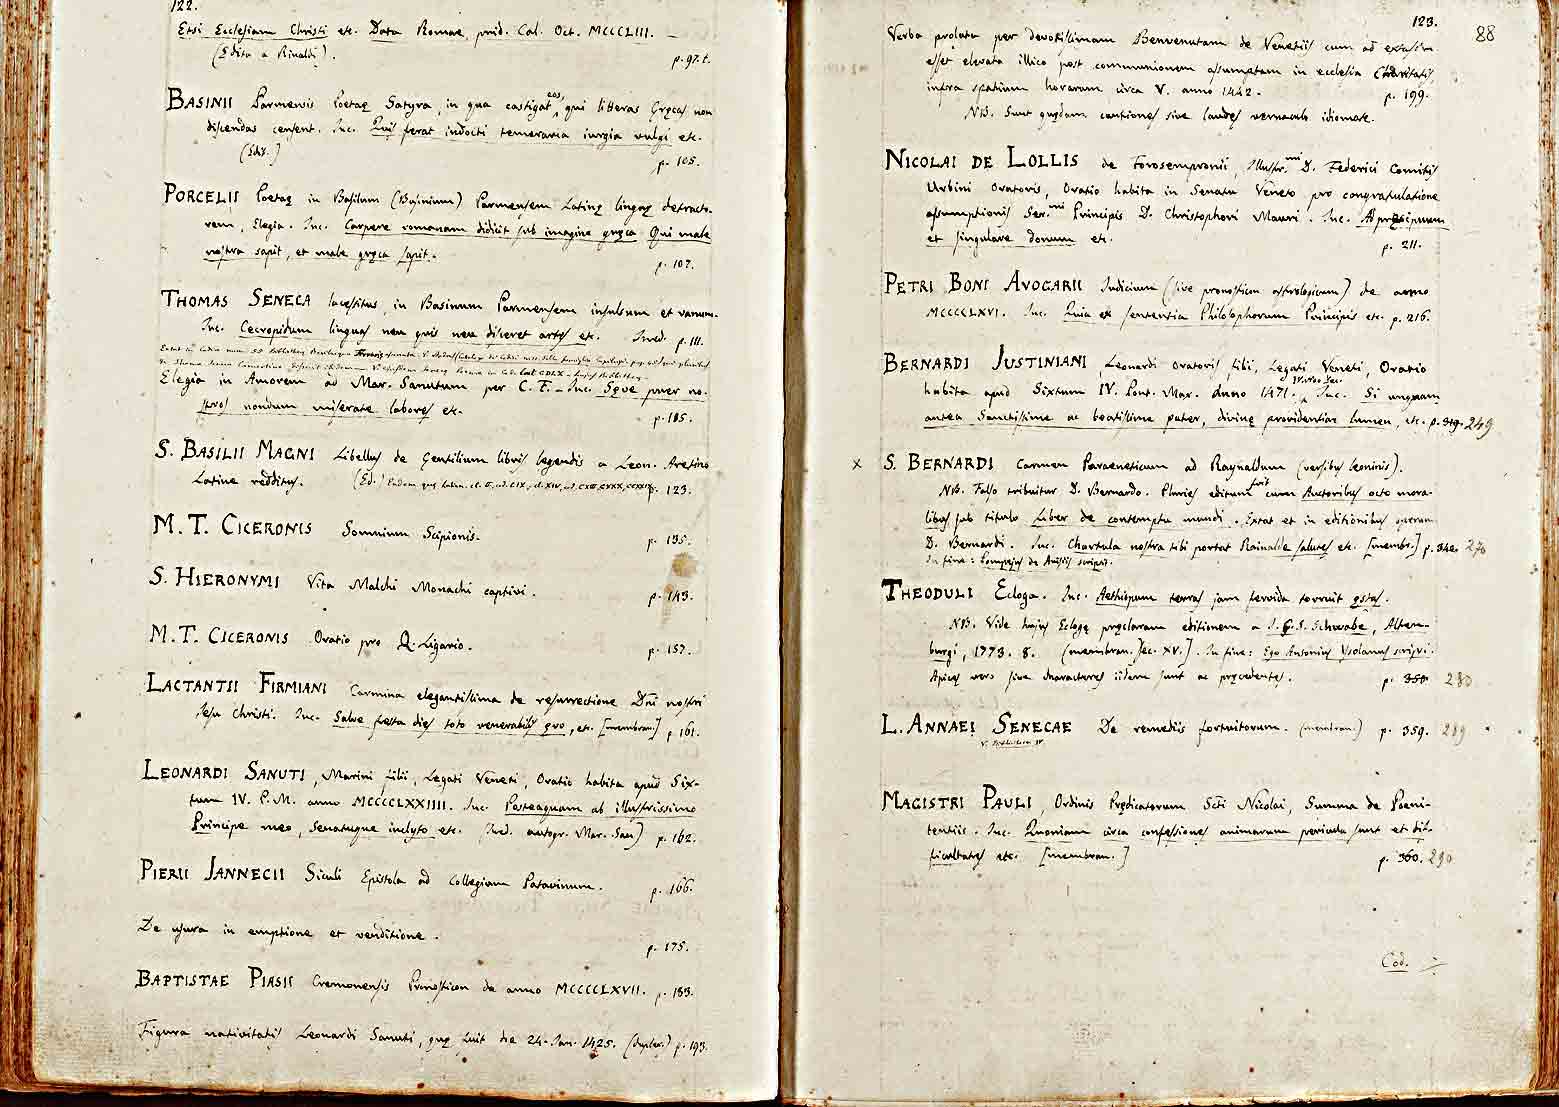 122.
Etsi Ecclesiam Christi etc. Data Romae, prid. Cal. Oct. MCCCLIII. —
(Edita a Rinaldi).
p. 97. t.
BASINII Parmensis Poetaę Satyra, in qua castigat eos, qui litteras Gręcas non
discendas censent. Inc. Quis ferat indocti temeraria iurgia vulgi etc.
(Edit.)
p. 105.
PORCELII Poetaę in Basilum (Basinium) Parmensem Latinę linguę detracto-
rem, Elegia. Inc. Carpere romanam didicit sub imagine gręca Qui male
nostra sapit, et male gręca sapit.
p. 107.
THOMAS SENECA lacessitus, in Basinum Parmensem insulsum et vanum.
Inc. Cecropidum linguas neu quis neu disceret artes etc. Ined. p. 111.
Elegia in Amorem ad Mar. Sanutum per C. F. — Inc. Sęve puer no-
stros nondum miserate labores etc.
p. 115.
S. BASILII MAGNI Libellus de Gentilium libris legendis a Leon. Aretino
Latine redditus. (Ed.) p. 123.
M. T. CICERONIS Somnium Scipionis.
p. 135.
S. HIERONYMI Vita Malchi Monachi captivi.
p. 143.
M. T. CICERONIS Oratio pro Q. Ligario.
p. 157.
LACTANTII FIRMIANI Carmina elegantissima de resurrectione Dñi nostri
Jesu Christi. Inc. Salve festa dies toto venerabilis ęvo, etc. [membran.] p. 161.
LEONARDI SANUTI, Marini filii, Legati Veneti, Oratio habita apud Six-
tum IV. P. M. anno MCCCCLXXIIII. Inc. Posteaquam ab illustrissimo
Principe meo, Senatuque inclyto etc. (Ined. autogr. Mar. San) p. 162.
PIERII JANNECII Siculi Epistola ad Collegium Patavinum.
p. 166.
De usura in emptione et venditione.
p. 175.
BAPTISTAE PIASII Cremonensis Pronosticon de anno MCCCCLXVII. p. 183.
Figura nativitatis Leonardi Sanuti, quę fuit die 24. Jan. 1425. (duplex.) p. 193.
123.
88
Verba prolata per devotissimam Benvenutam de Venetiis cum ad extasim
esset elevata illico post communionem assumptam in ecclesia Charitatis,
infra spatium horarum circa V. anno 1442.
p. 199.
NB. Sunt quędam cantiones sive laudes vernaculo idiomate.
NICOLAI DE LOLLIS de Forosempronii, Illustr.mi D. Federici Comitis
Urbini Oratoris, Oratio habita in Senatu Veneto pro congratulatione
assumptionis Ser.mi Principis D. Christophori Mauri. Inc. Ad pręcipuum
et singulare donum etc.
p. 211.
PETRI BONI AVOGARII Judicium (sive pronosticum astrologicum) de anno
MCCCCLXVI. Inc. Quia ex sententia Philosophorum Principis etc. p. 216.
BERNARDI JUSTINIANI, Leonardi Oratoris filii, Legati Veneti, Oratio
habita apud Sixtum IV. Pont. Max. Anno 1471. Inc. Si unquam
antea Sanctissime ac beatissime pater, divinę providentiae lumen, etc. p. 319. 249
x S. BERNARDI Carmen Paraeneticum ad Raynaldum (versibus leoninis).
NB. Falso tribuitur D. Bernardo. Pluries editum fuit cum Auctoribus octo mora-
libus sub titulo Liber de contemptu mundi. Extat et in editionibus operum
D. Bernardi. Inc. Chartula nostra tibi portat Rainalde salutes etc. [membr.] p. 340. 270
THEODULI Ecloga. Inc. Aethiopum terras jam fervida torruit ęstas.
NB. Vide hujus Eclogę pręclaram editionem a J. G. S. Schwabe, Altem-
burgi, 1773. 8. (membran. Sec. XV.). In fine: Ego Antonius Ysolanus scripsi.
Apices vero sive characteres iidem sunt ac pręcedentes.
p. 350 280
L. ANNAEI SENECAE De remediis fortuitorum. (membran.) p. 359. 289
MAGISTRI PAULI, Ordinis Prędicatorum Scti Nicolai, Summa de Poeni-
tentiis. Inc. Quoniam circa confessiones animarum pericula sunt et dif-
ficultates etc. [membran.]
p. 360. 290
Cod.